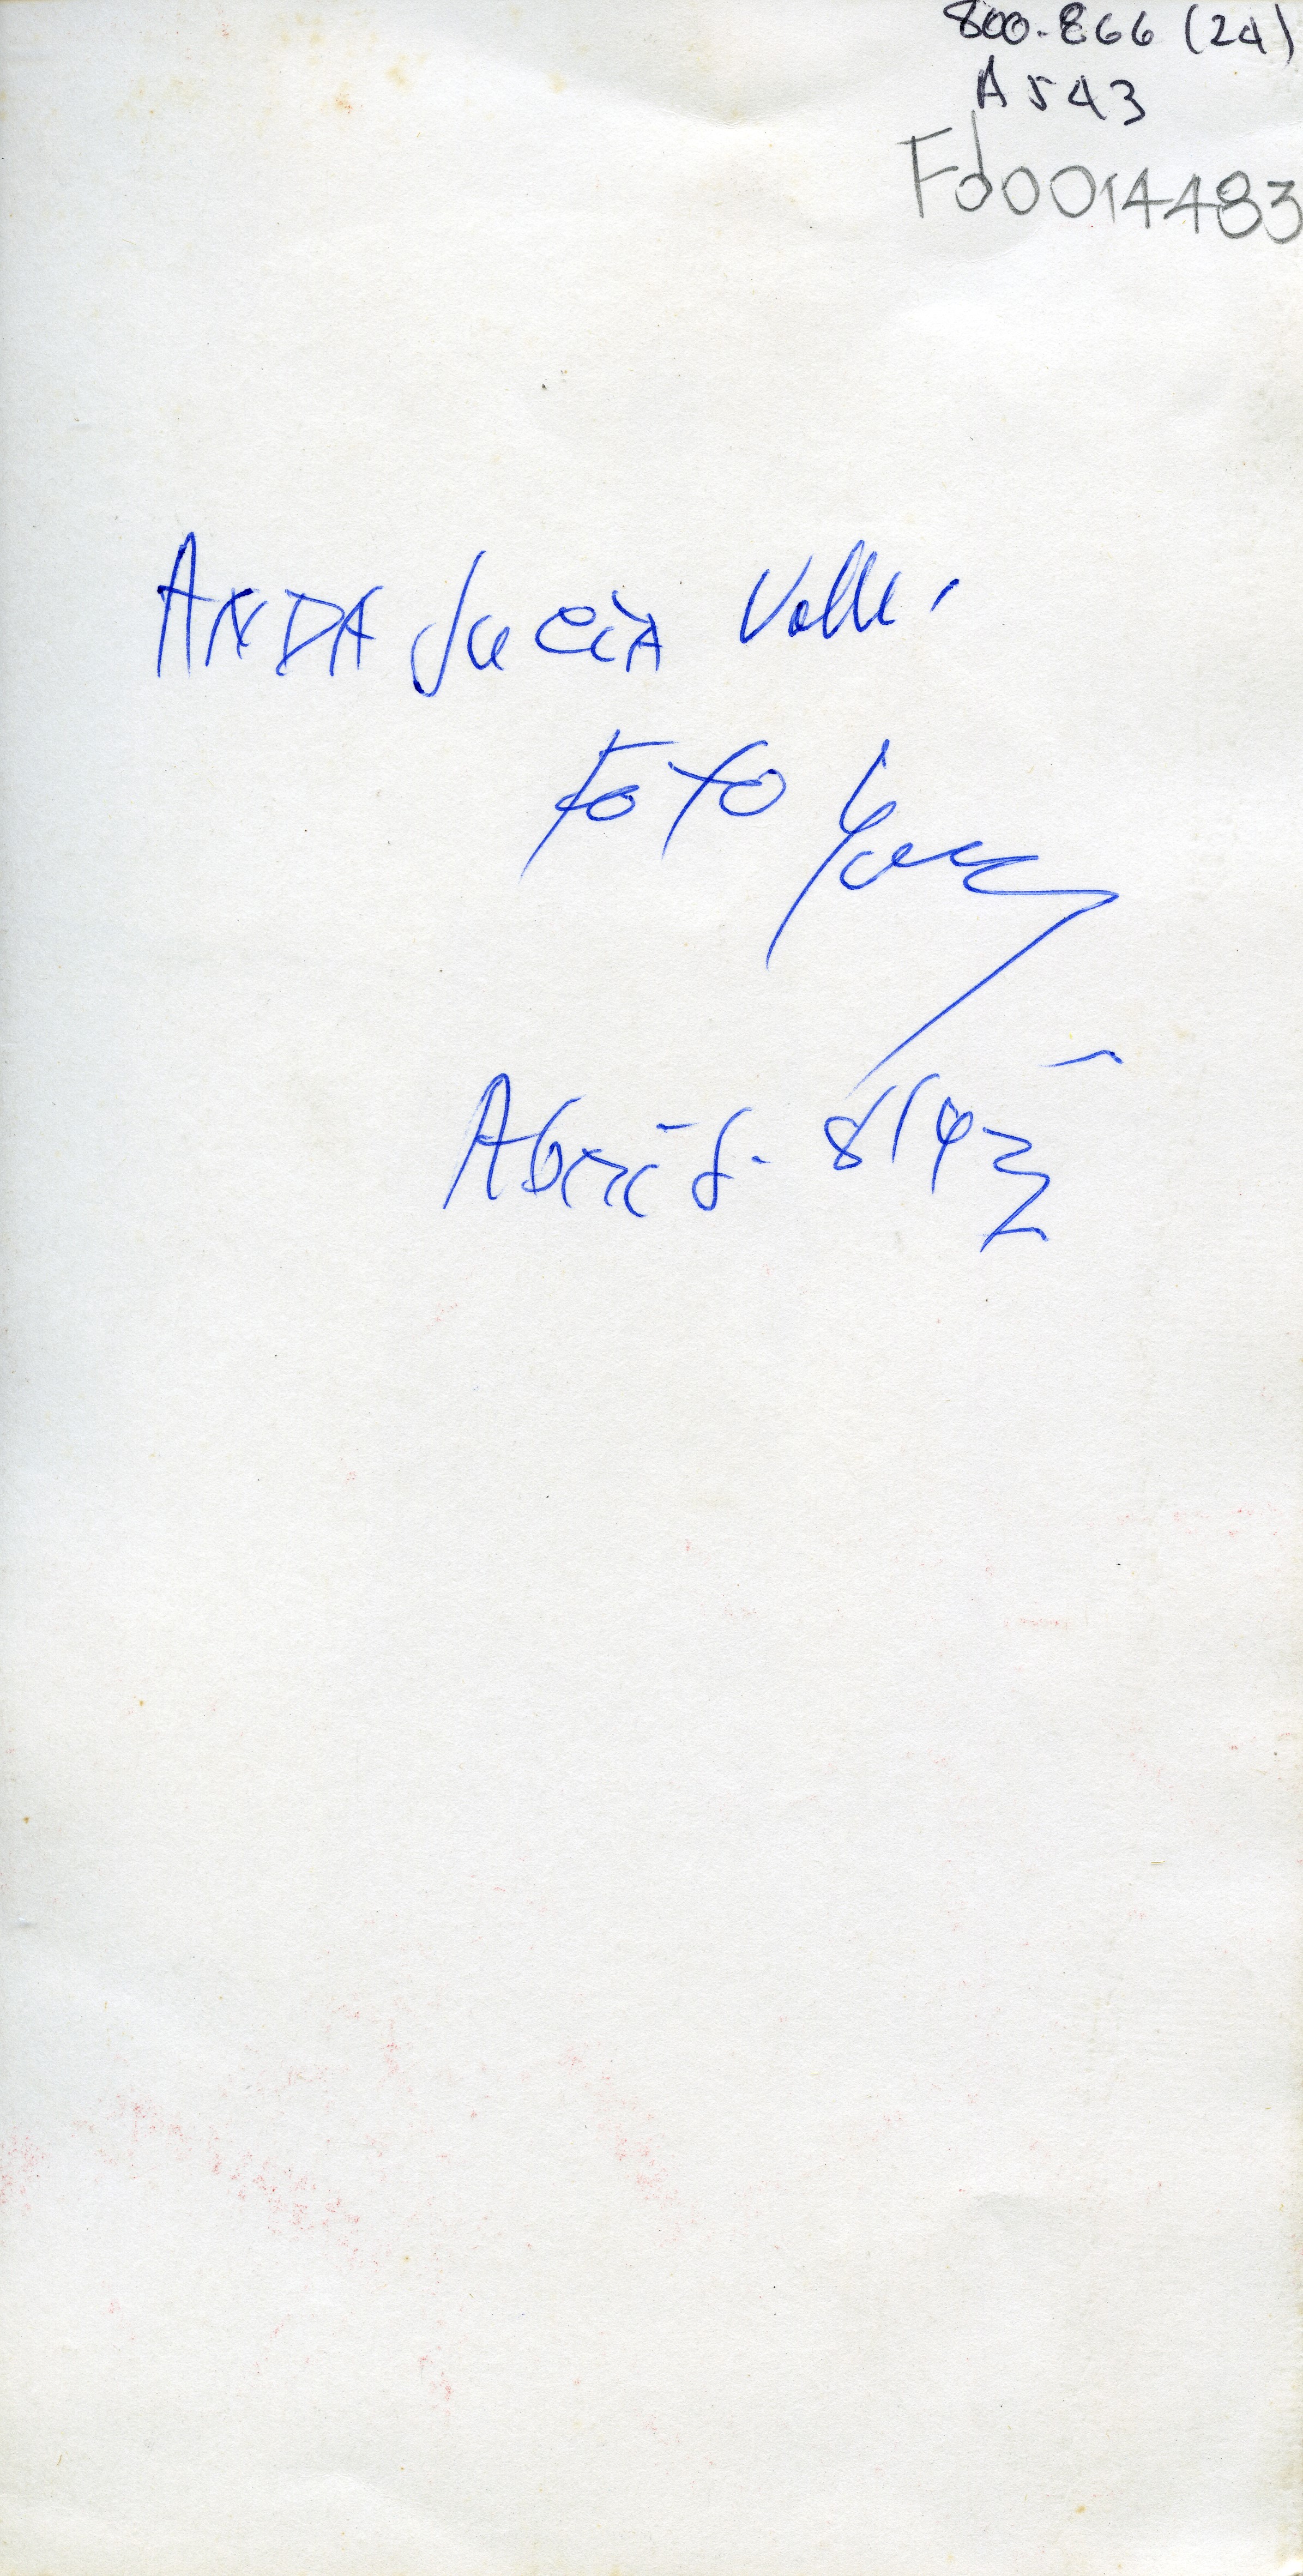 800-866 (24)
A543
Fd0014483
ANDAlucía Valle.
Foto
Abril 8/